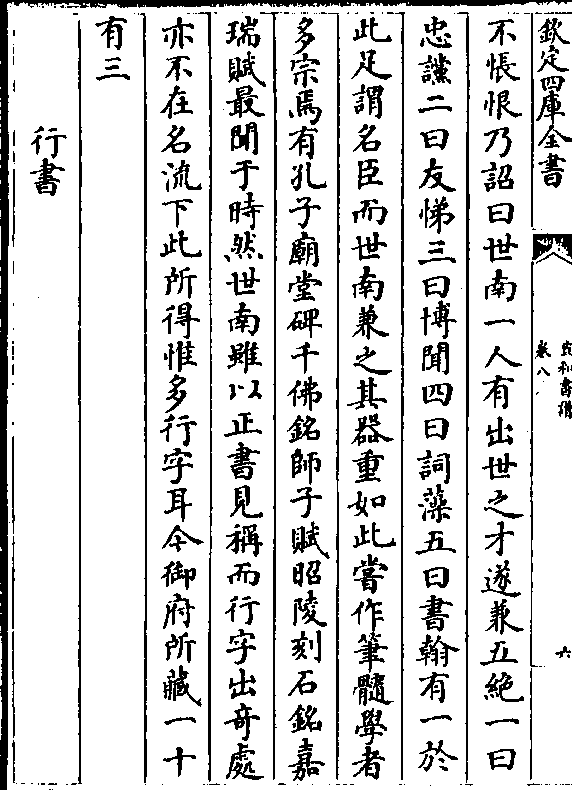 欽定四庫全書
宣和書譜
卷八
六
不悵恨乃詔曰世南一人有出世之才遂兼五絶一曰
忠讜二曰友悌三曰博聞四曰詞藻五曰書翰有一於
此足謂名臣而世南兼之其器重如此嘗作筆髓學者
多宗焉有孔子廟堂碑千佛銘師子賦昭陵刻石銘嘉
瑞賦最聞于時然世南雖以正書見稱而行字出奇處
亦不在名流下此所得惟多行字耳今御府所藏一十
有三
行書